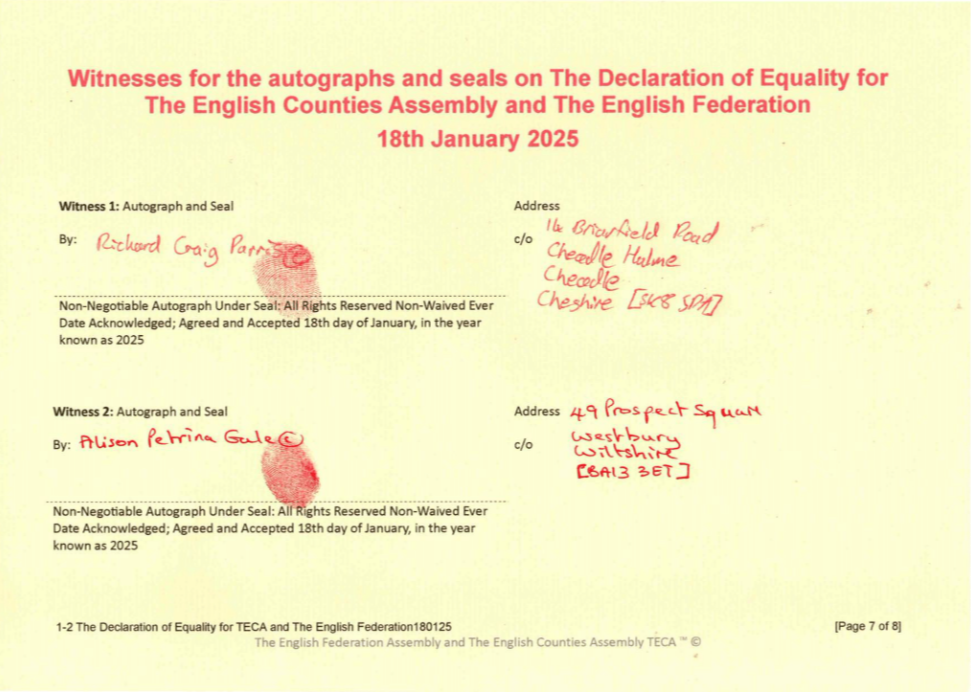 Witnesses for the autographs and seals on The Declaration of Equality for
The English Counties Assembly and The English Federation
18th January 2025
Witness 1: Autograph and Seal
By: Richard Craig Parris ©
Non-Negotiable Autograph Under Seal: All Rights Reserved Non-Waived Ever
Date Acknowledged; Agreed and Accepted 18th day of January, in the year
known as 2025
Address
c/o 14 Briarfield Road
Cheadle Hulme
Cheadle
Cheshire [SK8 5PA]
Witness 2: Autograph and Seal
By: Alison Petrina Gale ©
Non-Negotiable Autograph Under Seal: All Rights Reserved Non-Waived Ever
Date Acknowledged; Agreed and Accepted 18th day of January, in the year
known as 2025
Address 49 Prospect Square
c/o Westbury
Wiltshire
[BA13 3ET]
1-2 The Declaration of Equality for TECA and The English Federation180125
[Page 7 of 8]
The English Federation Assembly and The English Counties Assembly TECA ™ ©